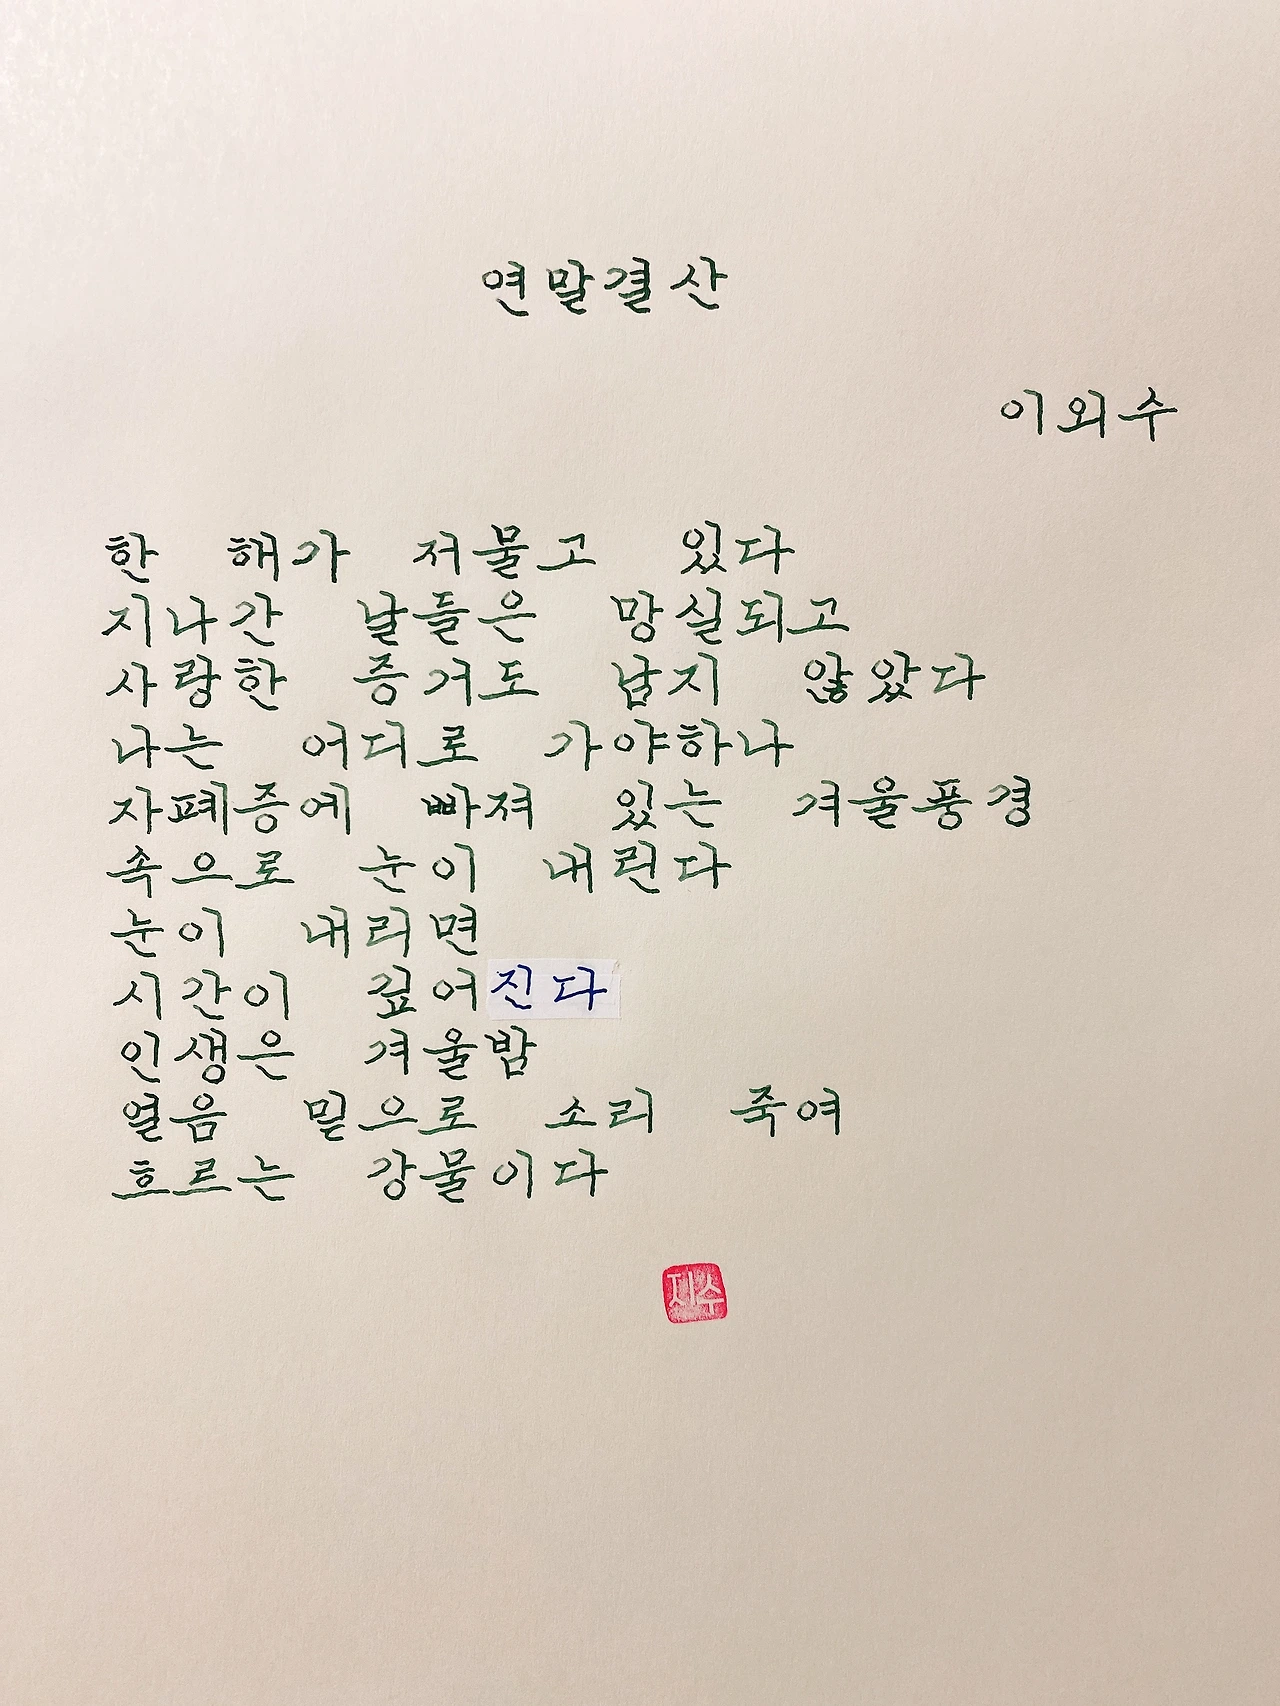 연말결산
이외수
한 해가 저물고 있다
지나간 날들은 망실되고
사랑한 증거도 남지 않았다
나는 어디로 가야하나
자폐증에 빠져 있는 겨울풍경
속으로 눈이 내린다
눈이 내리면
시간이 깊어진다
인생은 겨울밤
얼음 밑으로 소리 죽여
흐르는 강물이다
지수